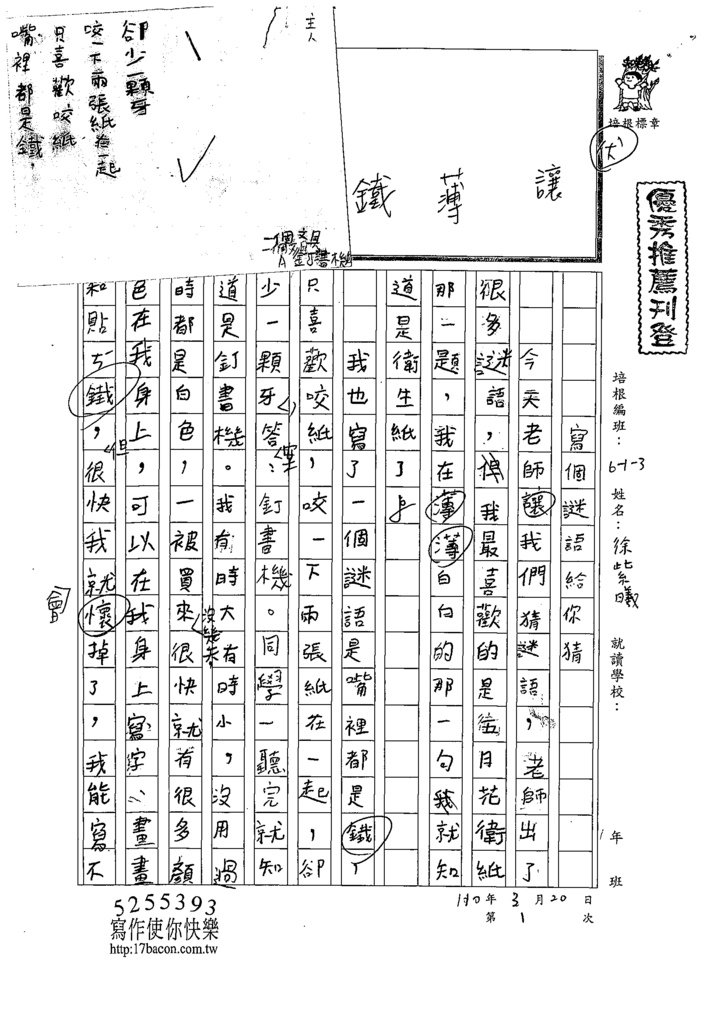 主人
卻少一顆牙
咬一下兩張紙在一起
只喜歡咬紙
嘴裡都是鐵，
二個文具
A釘書機
讓
薄
鐵
伏
培根標章
優秀推薦刊登
培根編班：6-1-3 姓名：徐紫曦 就讀學校： 1年 班
寫個謎語給你猜
今天老師讓我們猜謎語，老師出了
很多謎語，但我最喜歡的是伍月花衛紙
那一題，我在薄薄白白的那一句我就知
道是衛生紙了
我也寫了一個謎語是嘴裡都是鐵，
只喜歡咬紙，咬一下兩張紙在一起，卻
少一顆牙答案：釘書機。同學一聽完就知
道是釘書機。我有時大有時小，沒用過
時都是白色，一被買來沒幾天很快就有很多顏
色在我身上，可以在我身上寫字、畫畫
和貼ㄎ鐵，但很快我就會壞掉了，我能寫不
190年3月20日
第1次
5255393
寫作使你快樂
http:17bacon.com.tw